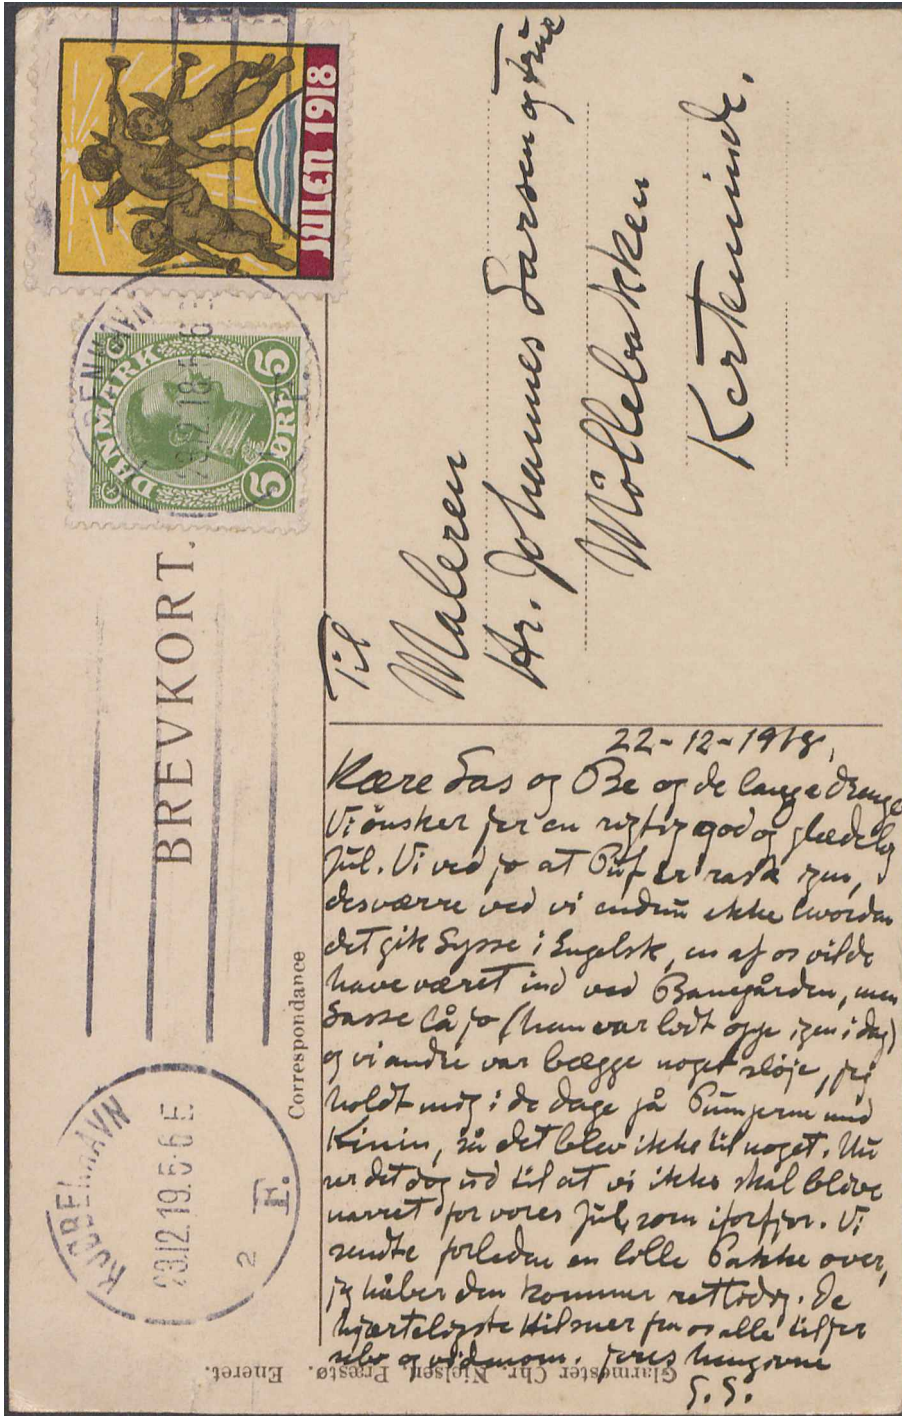 JULEN 1918
DANMARK
5 ØRE 5
BREVKORT.
KJØBENHAVN
23.12.19.5-6 E.
2 F.
Correspondance
Til
Maleren
Hr. Johannes Larsen og Frue
Möllebakken
Kerteminde.
22-12-1918,
Kære Las og Be og de lange drenge
Vi önsker jer en rigtig god og glædelig
Jul. Vi ved jo at Puf er rask igen,
desværre ved vi endnu ikke hvordan
det gik Sysse i Engelsk, en af os vilde
have været ind ved Banegården, men
Lasse lå jo (han var lidt oppe igen i dag)
og vi andre var begge noget sløje, jeg
holdt mig i de dage på Pumperne med
Kinin, så det blev ikke til noget. Nu
ser det dog ud til at vi ikke skal blive
narret for vores Jul, som iforfjor. Vi
sendte forleden en lille Pakke over,
jeg håber den kommer rettidig. De
hjerteligste Hilsner fra os alle til jer
selv og vidunom. Jeres hengivne
Glarmester Chr. Nielsen, Præstø. Eneret.